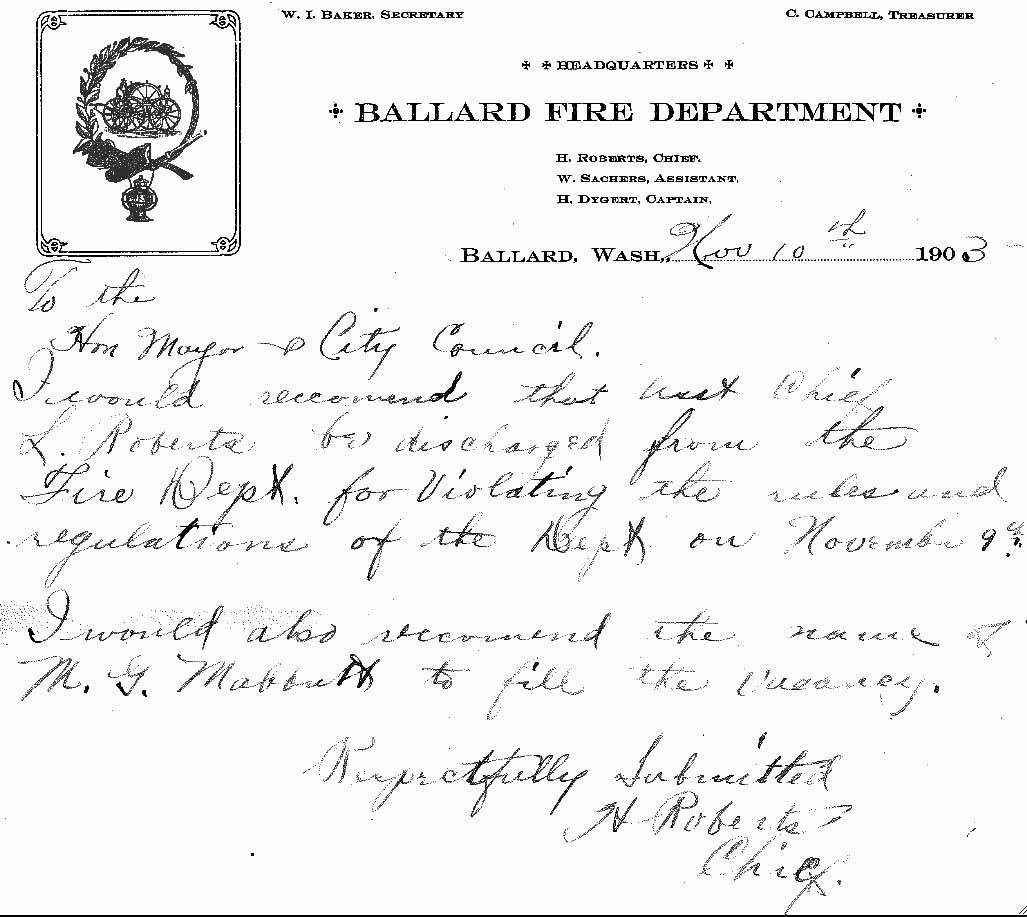 W. I. BAKER, SECRETARY
C. CAMPBELL, TREASURER
HEADQUARTERS
BALLARD FIRE DEPARTMENT
H. ROBERTS, CHIEF.
W. SACHERS, ASSISTANT,
H. DYGERT, CAPTAIN,
BALLARD, WASH., Nov 10th 1903
To the
Hon Mayor & City Council.
I would reccomend that Asst Chief
L. Roberts be discharged from the
Fire Dept. for Violating the rules and
regulations of the Dept on November 9th.
I would also reccomend the name of
M. G. Mabbutt to fill the vacancy.
Respectfully Submitted
H Roberts
Chief.